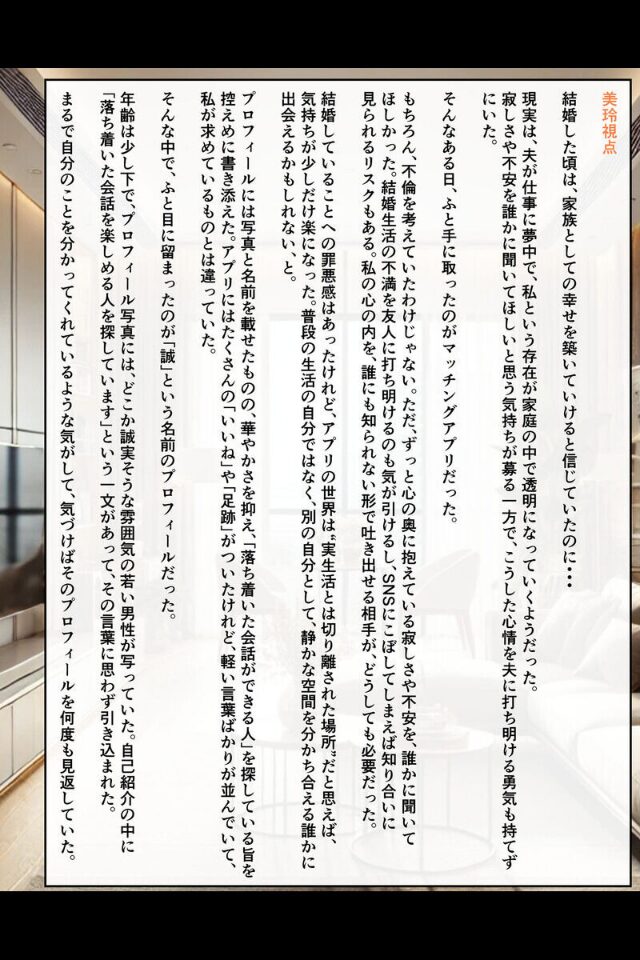 美玲視点
結婚した頃は、家族としての幸せを築いていけると信じていたのに・・・
現実は、夫が仕事に夢中で、私という存在が家庭の中で透明になっていくようだった。
寂しさや不安を誰かに聞いてほしいと思う気持ちが募る一方で、こうした心情を夫に打ち明ける勇気も持てず
にいた。
そんなある日、ふと手に取ったのがマッチングアプリだった。
もちろん、不倫を考えていたわけじゃない。ただ、ずっと心の奥に抱えている寂しさや不安を、誰かに聞いて
ほしかった。結婚生活の不満を友人に打ち明けるのも気が引けるし、SNSにこぼしてしまえば知り合いに
見られるリスクもある。私の心の内を、誰にも知られない形で吐き出せる相手が、どうしても必要だった。
結婚していることへの罪悪感はあったけれど、アプリの世界は“実生活とは切り離された場所”だと思えば、
気持ちが少しだけ楽になった。普段の生活の自分ではなく、別の自分として、静かな空間を分かち合える誰かに
出会えるかもしれない、と。
プロフィールには写真と名前を載せたものの、華やかさを抑え、「落ち着いた会話ができる人」を探している旨を
控えめに書き添えた。アプリにはたくさんの「いいね」や「足跡」がついたけれど、軽い言葉ばかりが並んでいて、
私が求めているものとは違っていた。
そんな中で、ふと目に留まったのが「誠」という名前のプロフィールだった。
年齢は少し下で、プロフィール写真には、どこか誠実そうな雰囲気の若い男性が写っていた。自己紹介の中に
「落ち着いた会話を楽しめる人を探しています」という一文があって、その言葉に思わず引き込まれた。
まるで自分のことを分かってくれているような気がして、気づけばそのプロフィールを何度も見返していた。